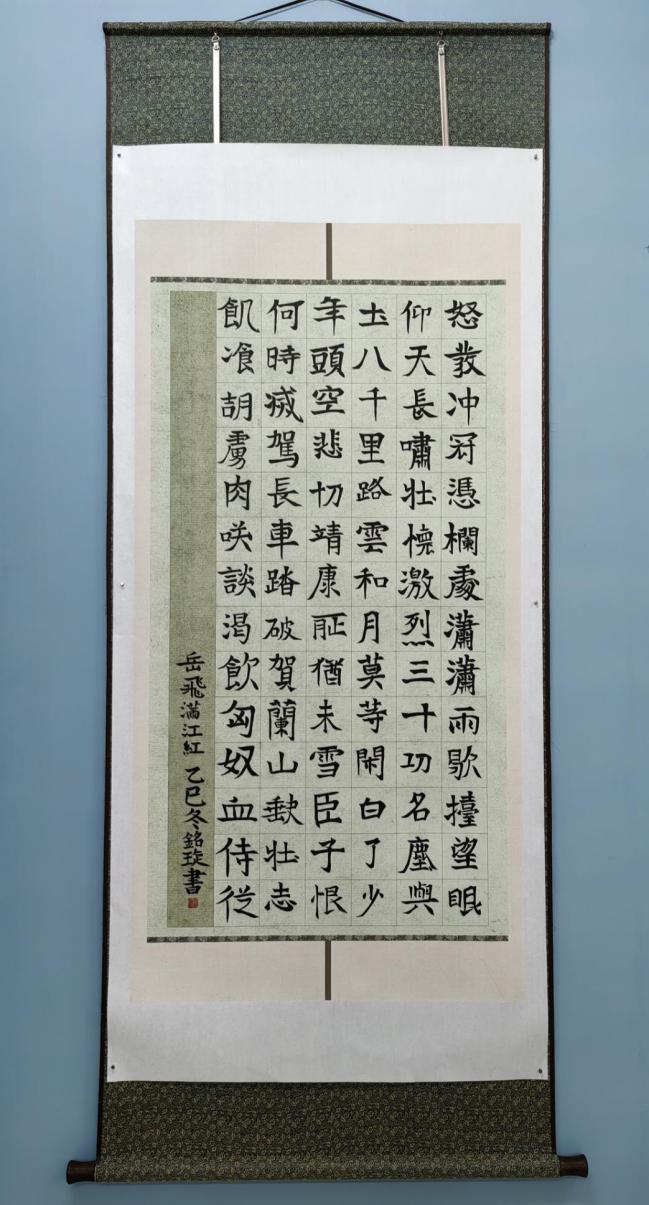 怒發冲冠憑欄處瀟瀟雨歇擡望眼
仰天長嘯壯懷激烈三十功名塵與
土八千里路雲和月莫等閑白了少
年頭空悲切靖康恥猶未雪臣子恨
何時滅駕長車踏破賀蘭山缺壯志
飢飡胡虜肉咲談渴飲匈奴血侍從
岳飛滿江紅 乙巳冬銘琁書